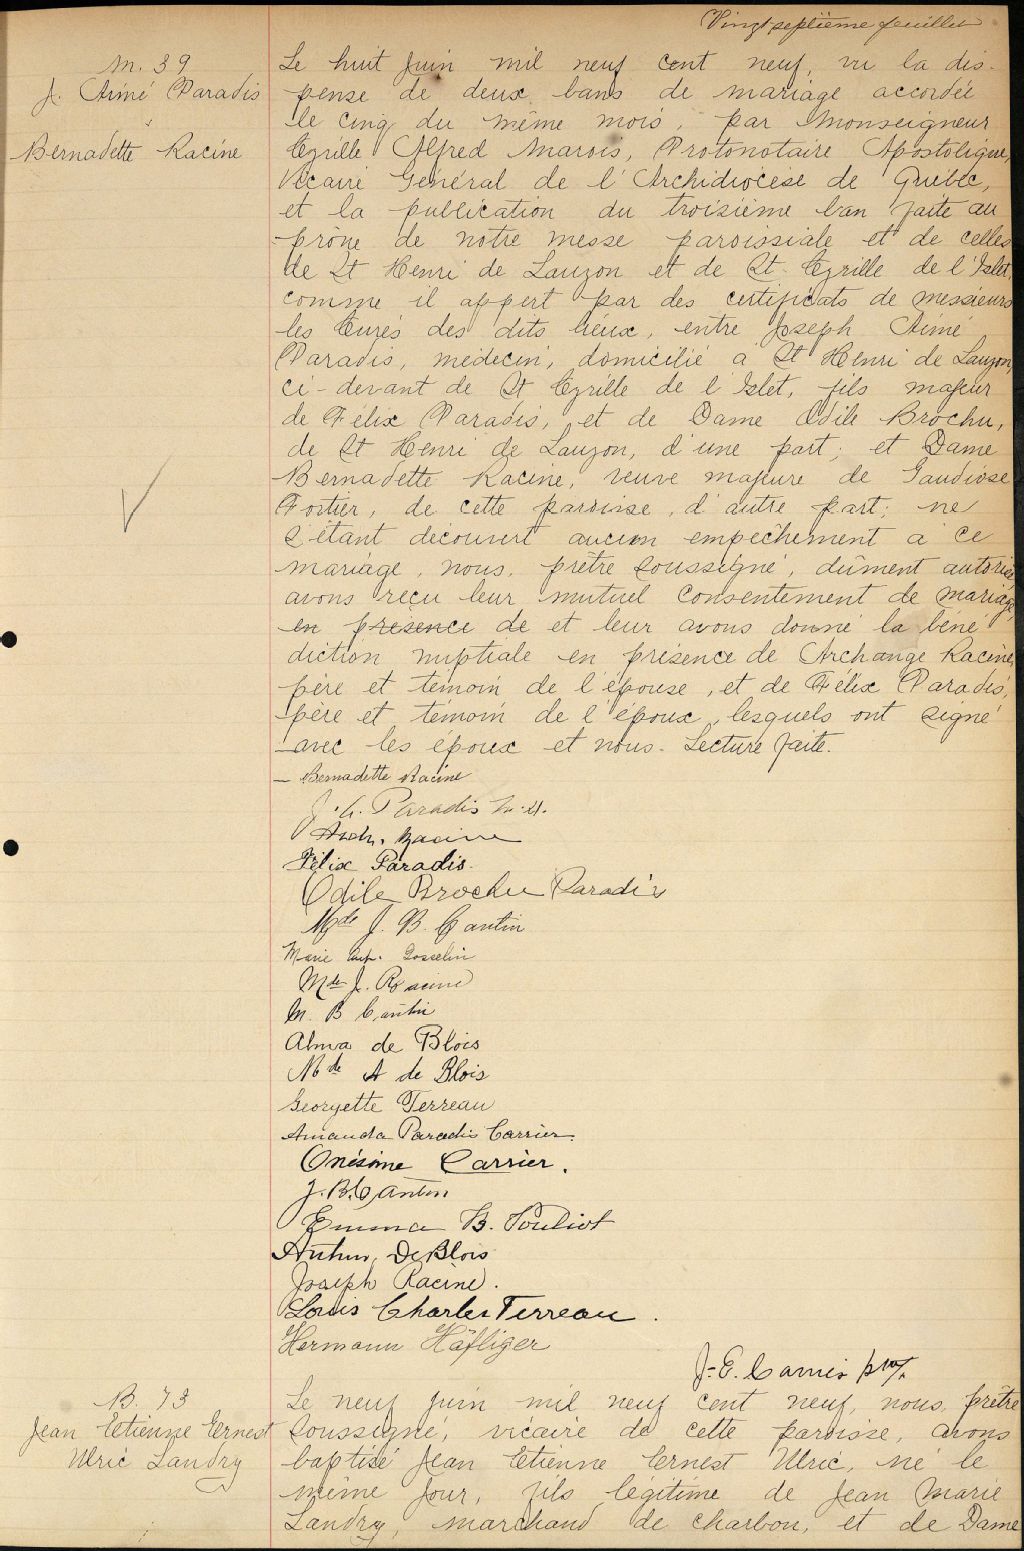 Vingt septième feuillet
M. 39
J. Aimé Paradis
&
Bernadette Racine
Le huit juin mil neuf cent neuf, vu la dis-
pense de deux bans de mariage accordée
le cinq du même mois, par Monseigneur
Cyrille Alfred Marois, Protonotaire Apostolique,
Vicaire Général de l'Archidiocèse de Québec,
et la publication du troisième ban faite au
prône de notre messe paroissiale et de celles
de St Henri de Lauzon et de St. Cyrille de l'Islet,
comme il appert par des certificats de messieurs
les Curés des dits lieux, entre Joseph Aimé
Paradis, médecin, domicilié à St Henri de Lauzon,
ci-devant de St Cyrille de l'Islet, fils majeur
de Félix Paradis, et de Dame Odile Brochu,
de St Henri de Lauzon, d'une part; et Dame
Bernadette Racine, veuve majeure de Gaudiose
Fortier, de cette paroisse, d'autre part; ne
s'étant découvert aucun empêchement à ce
mariage, nous, prêtre soussigné, dûment autorisé,
avons reçu leur mutuel consentement de mariage,
en présence de et leur avons donné la béné
diction nuptiale en présence de Archange Racine,
père et témoin de l'épouse, et de Félix Paradis,
père et témoin de l'époux, lesquels ont signé
avec les époux et nous. Lecture faite.
Bernadette Racine
J. A. Paradis M.D.
Arch. Racine
Félix Paradis.
Odile Brochu Paradis
Mde J. B. Cantin
Marie Gosselin
Mde J. Racine
M. B Cantin
Alma de Blois
Mde A de Blois
Georgette Terreau
Amanda Paradis Carrier
Onésime Carrier.
J. B. Cantin
Emma B. Pouliot
Arthur DeBlois
Joseph Racine.
Louis Charles Terreau.
Hermann Häfliger
J.-E. ptre
B. 73
Jean Etienne Ernest
Ulric Landry
Le neuf juin mil neuf cent neuf, nous, prêtre
soussigné, vicaire de cette paroisse, avons
baptisé Jean Etienne Ernest Ulric, né le
même jour, fils légitime de Jean Marie
Landry, marchand de charbon, et de Dame